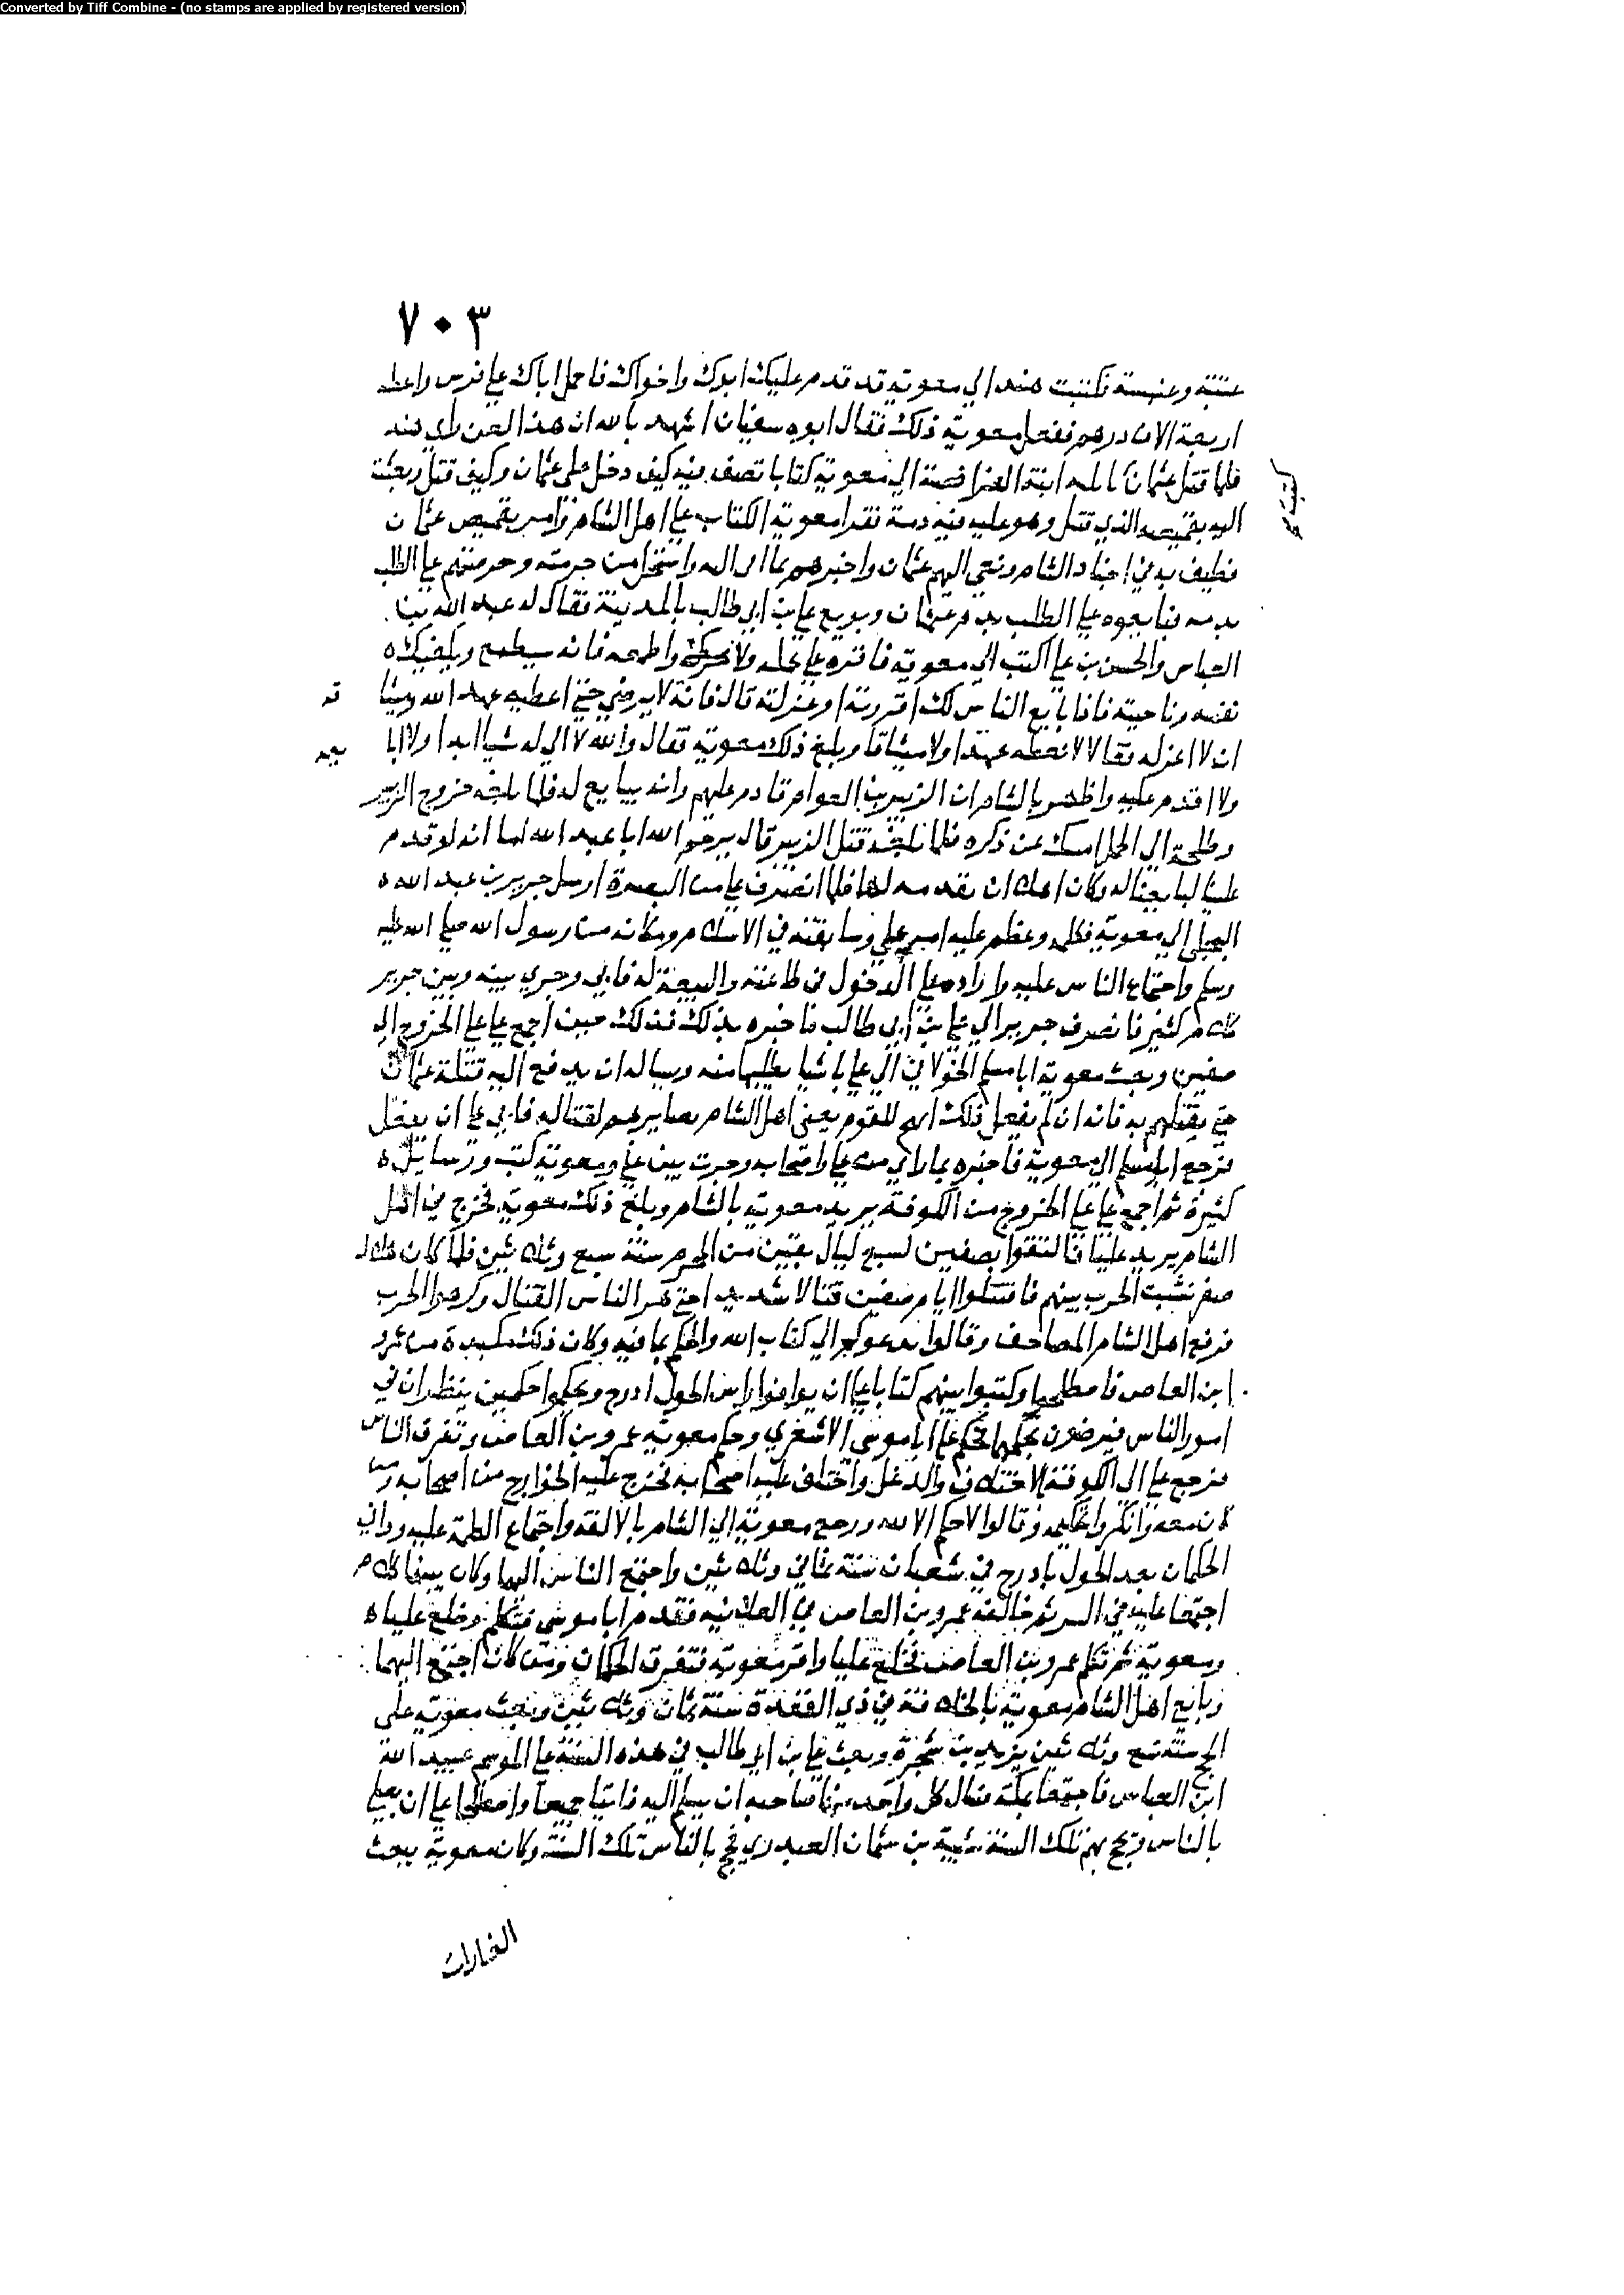 Converted by Tiff Combine - (no stamps are applied by registered version)
٧٠٣
عتبة وعنبسة فكتبت هند الي معوية قد قدم عليك ابوك واخواك فاحمل اباك علي فرس واعطه
اربعة الاف درهم ففعل معوية ذلك فقال ابو سفيان اشهد بالله ان هذا لعن راي هند
فلما قتل عثمان ابنة الفرافصة الي معوية كتابا تصف فيه كيف دخل على عثمان وكيف قتل وبعثت
اليه بقميصه الذي قتل وهو عليه فيه دمه فقرا معوية الكتاب علي اهل الشام وامر بقميص عثمان
فطيف به في اجناد الشام ونعي اليهم عثمان واخبرهم بما اتي اليه واستحل من حرمته وحرضهم علي الطلب
بدمه فبايعوه علي الطلب بدم عثمان وبويع علي بن ابي طالب بالمدينة فقال له عبد الله بن
العباس والحسن بن علي اكتب الي معوية فاقره علي عمله ولا تحركه واطعمه فانه سيطمع ويكفيك
نفسه وناحيته فاذا بايع الناس لك اقررته او عزلته قال فانه لا يرضي حتي اعطيه عهد الله وميثاقه
ان لا اعزله فقالا لا تعطه عهدا ولا ميثاقا وبلغ ذلك معوية فقال والله لا الي له شيا ابدا ولا ابايعه
ولا اقدم عليه واظهر بالشام ان الزبير بن العوام قادم عليهم وانه يبايع له فلما بلغه خروج الزبير
وطلحة الي الجمل امسك عن ذكره فلما بلغه قتل الزبير قال يرحم الله ابا عبد الله اما انه لو قدم
علينا لبايعنا له وكان اهلا ان نقدمه لها فلما انصرف علي من البصرة ارسل جرير بن عبد الله
البجلي الي معوية فكلمه وعظم عليه امر علي وسابقته في الاسلام ومكانه من رسول الله صلي الله عليه
وسلم واجتماع الناس عليه واراده علي الدخول في طاعته والبيعة له فابي وجري بينه وبين جرير
كلام كثير فانصرف جرير الي علي بن ابي طالب فاخبره بذلك فذلك حين اجمع علي علي الخروج الي
صفين وبعث معوية ابا مسلم الخولاني الي علي باشيا يطلبها منه ويساله ان يدفع اليه قتلة عثمان
حتي يقتلهم به فانه ان لم يفعل ذلك للقوم يعني اهل الشام بصايرهم لقتاله فابي علي ان يفعل
فرجع ابو مسلم الي معوية فاخبره بما راي من علي واصحابه وجرت بين علي ومعوية كتب ورسايل
كثيرة ثم اجمع علي علي الخروج من الكوفة يريد معوية بالشام وبلغ ذلك معوية فخرج في اهل
الشام يريد عليا فالتقوا بصفين لسبع ليال بقين من المحرم سنة سبع وثلاثين فلما كان هلال
صفر نشبت الحرب بينهم فاقتتلوا ايام صفين قتالا شديدا حتي هر الناس القتال وكرهوا الحرب
فرفع اهل الشام المصاحف وقالوا ندعوكم الي كتاب الله والحكم بما فيه وكان ذلك مكيدة من عمرو
ابن العاص فاصطلحوا وكتبوا بينهم كتابا علي ان يوافوا راس الحول اذرح ويحكموا حكمين ينظران في
امور الناس فيرضون بحكمهما فحكم علي ابا موسي الاشعري وحكم معوية عمرو بن العاص وتفرق الناس
فرجع علي الي الكوفة بالاختلاف والدغل واختلف عليه اصحابه فخرج عليه الخوارج من اصحابه ومن
كان معه وانكروا تحكيمه وقالوا لا حكم الا لله ورجع معوية الي الشام بالالفة واجتماع الكلمة عليه ووافي
الحكمان بعد الحول باذرح في شعبان سنة ثماني وثلاثين واجتمع الناس اليهما وكان بينهما كلام
اجتمعا عليه في السر ثم خالفه عمرو بن العاص في العلانية فقدم ابا موسي فتكلم وخلع عليا
ومعوية ثم تكلم عمرو بن العاص فخلع عليا واقر معوية فتفرق الحكمان ومن كان اجتمع اليهما
وبايع اهل الشام معوية بالخلافة في ذي القعدة سنة ثمان وثلاثين وبعث معوية على
الحج سنة تسع وثلاثين يزيد بن شجرة وبعث علي بن ابي طالب في هذه السنة علي الموسم عبيد الله
ابن العباس فاجتمعا بمكة فسال كل واحد منهما صاحبه ان يسلم اليه فابيا جميعا واصطلحا علي ان يصلي
بالناس ويحج بهم تلك السنة شيبة بن عثمان العبدري فحج بالناس تلك السنة وكان معوية يبعث
الغارات